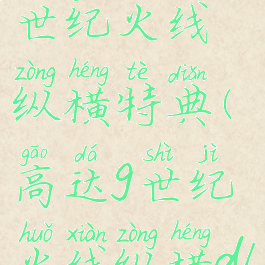 世纪火线
zòng héng tè diǎn
纵横特典(
gāo dá shì jì
高达9世纪
huǒ xiàn zòng héng
火线纵横d(